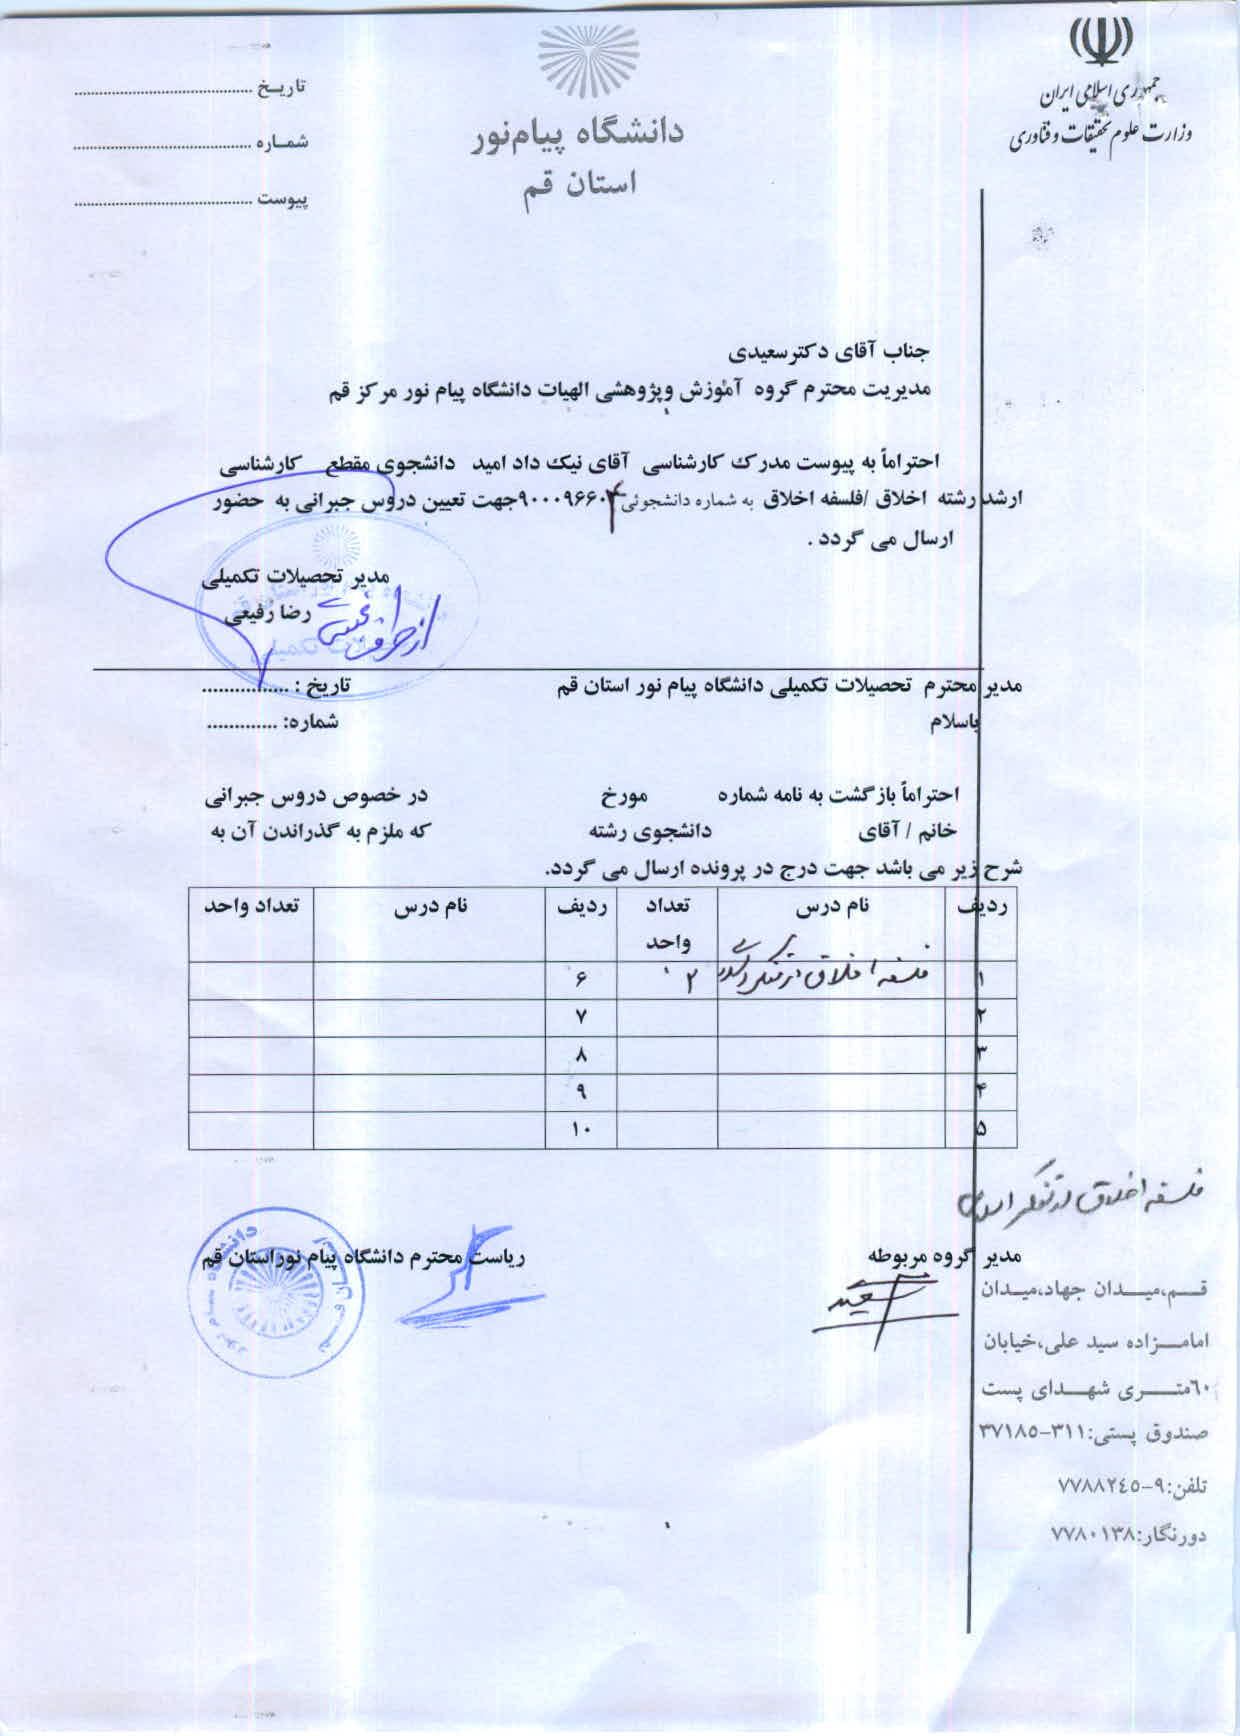 جمهوری اسلامی ایران
وزارت علوم تحقیقات و فناوری
دانشگاه پیام‌نور
استان قم
تاریخ ........................................
شماره ........................................
پیوست ........................................
جناب آقای دکترسعیدی
مدیریت محترم گروه آموزش وپژوهشی الهیات دانشگاه پیام نور مرکز قم
احتراماً به پیوست مدرک کارشناسی آقای نیک داد امید دانشجوی مقطع کارشناسی
ارشد رشته اخلاق /فلسفه اخلاق به شماره دانشجوئی ۹۰۰۰۹۶۶۰۴جهت تعیین دروس جبرانی به حضور
ارسال می گردد .
مدیر تحصیلات تکمیلی
رضا رفیعی
از طرف
مدیر محترم تحصیلات تکمیلی دانشگاه پیام نور استان قم تاریخ : ................
باسلام شماره: .............
احتراماً بازگشت به نامه شماره مورخ در خصوص دروس جبرانی
خانم / آقای دانشجوی رشته که ملزم به گذراندن آن به
شرح زیر می باشد جهت درج در پرونده ارسال می گردد.
ردیف نام درس تعداد واحد ردیف نام درس تعداد واحد
۱ فلسفه اخلاق در تفکر اسلامی ۲ ۶
۲ ۷
۳ ۸
۴ ۹
۵ ۱۰
فلسفه اخلاق در تفکر اسلامی
مدیر گروه مربوطه ریاست محترم دانشگاه پیام نوراستان قم
سعیدی
قم،میدان جهاد،میدان
امامزاده سید علی،خیابان
٦٠متری شهدای پست
صندوق پستی:٣١١-٣٧١٨٥
تلفن:٩-٧٧٨٨٢٤٥
دورنگار:٧٧٨٠١٣٨